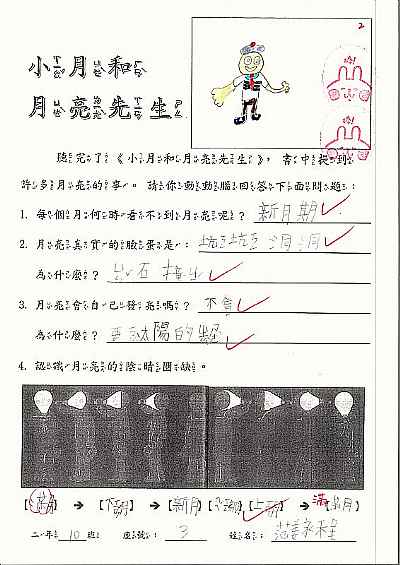 小月和
月亮先生
聽完了《小月和月亮先生》，書中提到
許多月亮的事。請你動動腦回答下面問題：
1. 每個月何時看不到月亮呢？新月期
2. 月亮真實的臉蛋是：坑坑洞洞
為什麼？石
3. 月亮會自己發亮嗎？不會
為什麼？太陽的
4. 認識月亮的陰晴圓缺。
【滿月】→【下弦月】→【新月】【上弦月】→【滿月】
二年10班 座號：3 姓名：